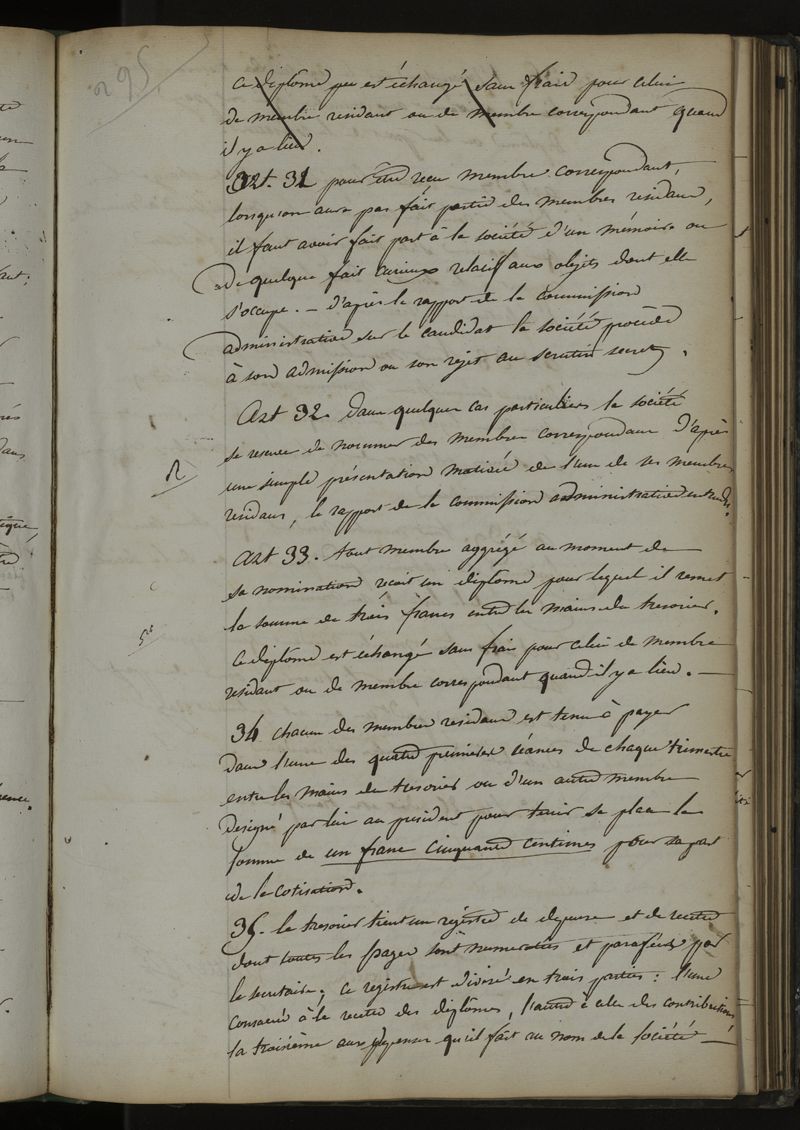 295
ce diplome est échangé sans frais pour celui
de membre residant ou de membre correspondant quand
il y a lieu.
Art. 31 pour être recu membre correspondant,
lorsqu'on aura pas fait partie des membres residans,
il faut avoir fait part à la société d'un mémoire ou
de quelque fait curieux relatif aux objets dont elle
s'occupe. – D'après le rapport de la commission
administrative sur le candidat la société procède
à son admission ou son rejet au scrutin secret.
Art 32. Dans quelques cas particuliers la société
se reserve de nommer des membres correspondans d'après
une simple présentation motivée de l'un de ses membres
residans, le rapport de la commission administrative entendu.
Art 33. tout membre aggrégé au moment de
sa nomination recoit un diplome pour lequel il remet
la somme de trois francs entre les mains du tresorier.
Ce diplome est échangé sans frais pour celui de membre
residant ou de membre correspondant quand il y a lieu. —
34 chacun des membres residans est tenu à payer
dans l'une des quatre premieres séances de chaque trimestre
entre les mains du tresorier ou d'un autre membre
designé par lui au president pour tenir sa place la
somme de un franc cinquante centimes pour sa part
de la cotisation.
35. le tresorier tient un régistre de depense et de recette
dont toutes les pages sont numerotées et parafées par
le secretaire; ce registre est divisé en trois parties: l'une
consacrée à la recette des diplomes, l'autre à celle des contributions
la troisième aux depenses qu'il fait au nom de la Société —